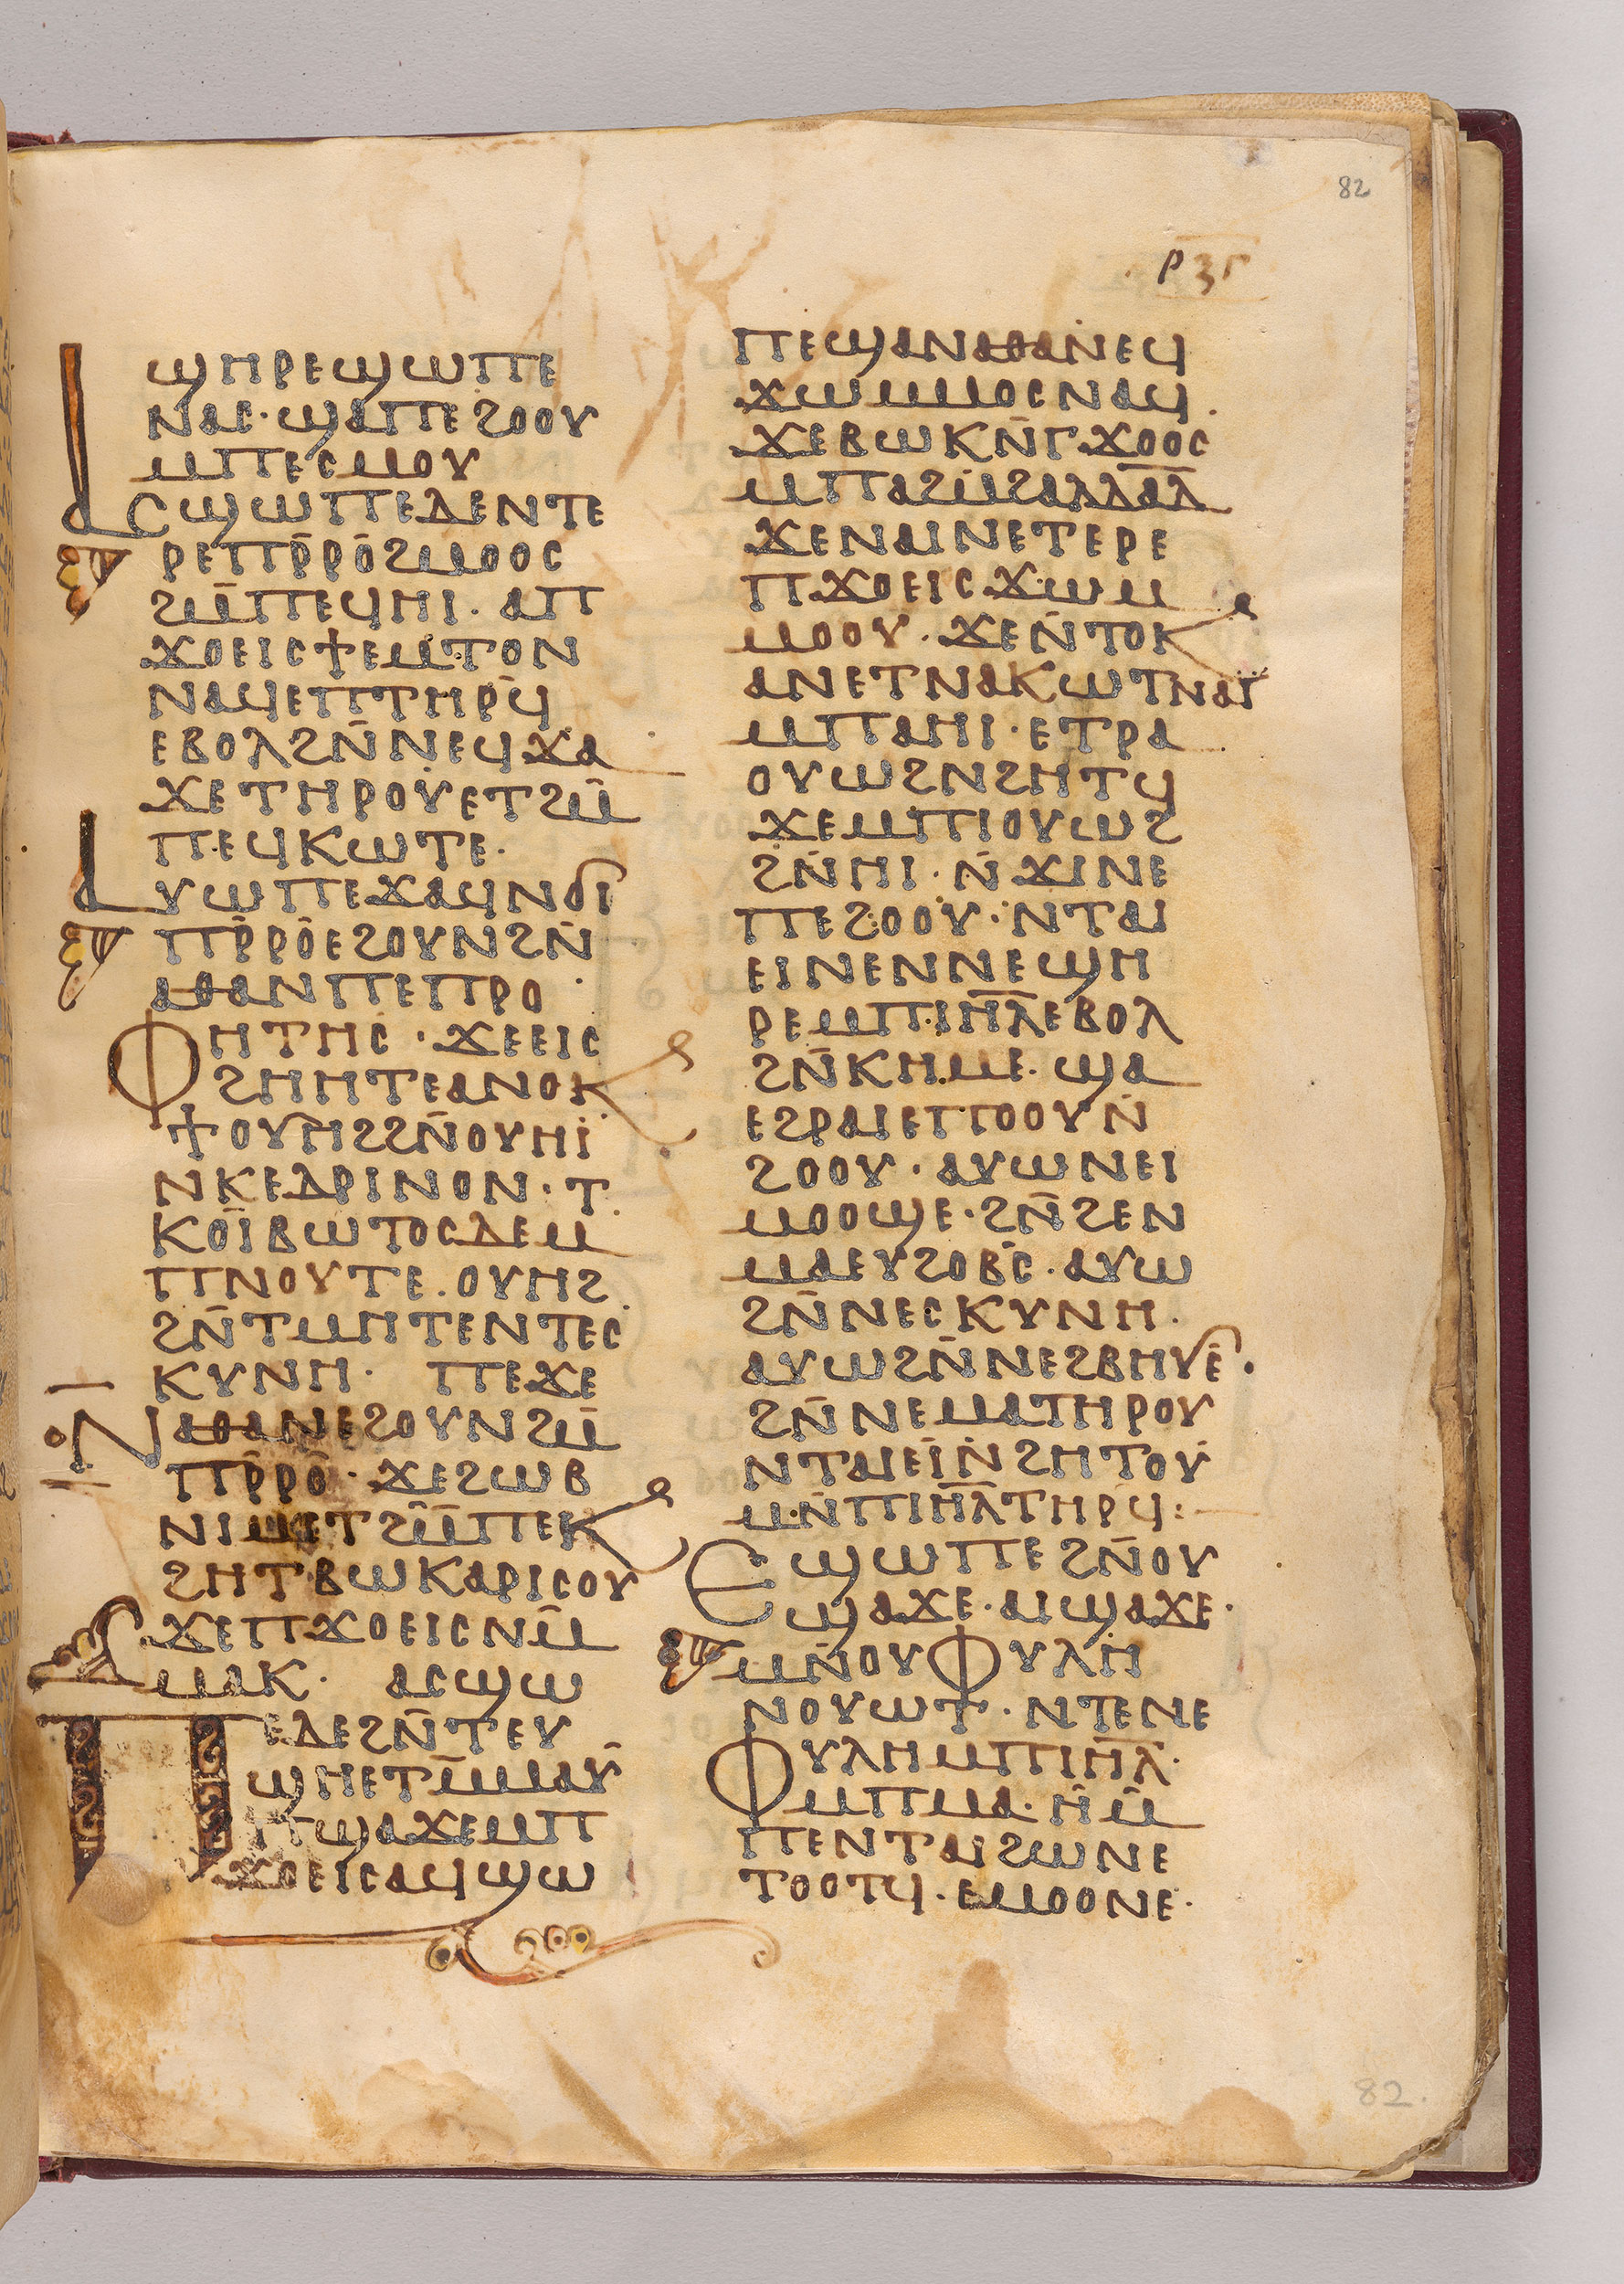 82
ⲣⲝⲅ
ϣⲏⲣⲉϣⲱⲡⲉ
ⲛⲁⲥ·ϣⲁⲡⲉϩⲟⲟⲩ
ⲙⲡⲉⲥⲙⲟⲩ
ⲁⲥϣⲱⲡⲉⲇⲉⲛⲧⲉ
ⲣⲉⲡⲣ̄ⲣⲟ̄ϩⲙⲟⲟⲥ
ϩⲙ̄ⲡⲉϥⲏⲓ· ⲁⲡ
ϫⲟⲉⲓⲥϯⲉⲙⲧⲟⲛ
ⲛⲁϥⲉⲡⲧⲏⲣϥ̄
ⲉⲃⲟⲗϩⲛ̄ⲛⲉϥϫⲁ
ϫⲉⲧⲏⲣⲟⲩⲉⲧϩⲙ̄
ⲡⲉϥⲕⲱⲧⲉ·
ⲁⲩⲱⲡⲉϫⲁϥⲛϭⲓ
ⲡⲣ̄ⲣⲟ̄ⲉϩⲟⲩⲛϩⲛ̄
ⲛⲁⲑⲁⲛⲡⲉⲡⲣⲟ
ⲫⲏⲧⲏⲥ·ϫⲉⲉⲓⲥ
ϩⲏⲏⲧⲉⲁⲛⲟⲕ
ϯⲟⲩⲏϩϩⲛ̄ⲟⲩⲏⲓ̈
ⲛⲕⲉⲇⲣⲓⲛⲟⲛ·ⲧ
ⲕⲟⲓ̈ⲃⲱⲧⲟⲥⲇⲉⲙ
ⲡⲛⲟⲩⲧⲉ·ⲟⲩⲏϩ
ϩⲛ̄ⲧⲙⲏⲧⲉⲛⲧⲉⲥ
ⲕⲩⲛⲏ· ⲡⲉϫⲉ
ⲛⲁⲑⲁⲛⲉϩⲟⲩⲛϩⲙ̄
ⲡⲣ̄ⲣⲟ̄·ϫⲉϩⲱⲃ
ⲛⲓⲙⲉⲧϩⲙ̄ⲡⲉⲕ
ϩⲏⲧⲃⲱⲕⲁⲣⲓⲥⲟⲩ
ϫⲉⲡϫⲟⲉⲓⲥⲛⲙ̄
ⲙⲁⲕ· ⲁⲥϣⲱ
ⲡⲉⲇⲉϩⲛ̄ⲧⲉⲩ
ϣⲏⲉⲧⲙ̄ⲙⲁⲩ
ⲡϣⲁϫⲉⲙⲡ
ϫⲟⲉⲓⲥⲁϥϣⲱ
ⲡⲉϣⲁⲛⲁⲑⲁⲛⲉϥ
ϫⲱⲙⲙⲟⲥⲛⲁϥ·
ϫⲉⲃⲱⲕⲛ̄ⲅϫⲟⲟⲥ
ⲙⲡⲁϩⲙ̄ϩⲁⲗⲇⲁ̄ⲇ̄
ϫⲉⲛⲁⲓⲛⲉⲧⲉⲣⲉ
ⲡϫⲟⲉⲓⲥϫⲱⲙ
ⲙⲟⲟⲩ·ϫⲉⲛ̄ⲧⲟⲕ
ⲁⲛⲉⲧⲛⲁⲕⲱⲧⲛⲁⲓ̈
ⲙⲡⲁⲏⲓ·ⲉⲧⲣⲁ
ⲟⲩⲱϩⲛϩⲏⲧϥ
ϫⲉⲙⲡⲓⲟⲩⲱϩ
ϩⲛ̄ⲏⲓ·ⲛ̄ϫⲓⲛⲉ
ⲡⲉϩⲟⲟⲩ·ⲛⲧⲁⲓ
ⲉⲓⲛⲉⲛⲛⲉϣⲏ
ⲣⲉⲙⲡⲓⲏ̄ⲗ̄ⲉⲃⲟⲗ
ϩⲛ̄ⲕⲏⲙⲉ·ϣⲁ
ⲉϩⲣⲁⲓⲉⲡⲟⲟⲩⲛ̄
ϩⲟⲟⲩ·ⲁⲩⲱⲛⲉⲓ
ⲙⲟⲟϣⲉ·ϩⲛ̄ϩⲉⲛ
ⲙⲁⲉⲩϩⲟⲃⲥ̄·ⲁⲩⲱ
ϩⲛ̄ⲛⲉⲥⲕⲩⲛⲏ·
ⲁⲩⲱϩⲛ̄ⲛⲉϩⲃⲏⲩⲉ̄·
ϩⲛ̄ⲛⲉⲙⲁⲧⲏⲣⲟⲩ
ⲛⲧⲁⲓⲉⲓ̈ⲛ̄ϩⲏⲧⲟⲩ
ⲙⲛ̄ⲡⲓⲏ̄ⲗ̄ⲧⲏⲣϥ:
ⲉϣⲱⲡⲉϩⲛ̄ⲟⲩ
ϣⲁϫⲉ·ⲁⲓϣⲁϫⲉ·
ⲙⲛ̄ⲟⲩⲫⲩⲗⲏ
ⲛⲟⲩⲱⲧ·ⲛⲧⲉⲛⲉ
ⲫⲩⲗⲏⲙⲡⲓⲏ̄ⲗ̄·
ⲙⲡⲙⲁ·ⲏ̇ⲙ̄
ⲡⲉⲛⲧⲁⲓϩⲱⲛⲉ
ⲧⲟⲟⲧϥ·ⲉⲙⲟⲟⲛⲉ·
82.